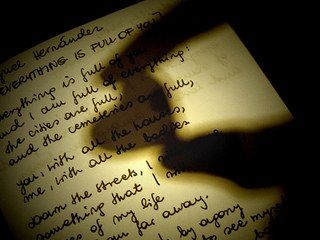 Hernández
EVERYTHING IS FULL OF YOU
everything is full of you
and I am full of everything:
the cities are full,
and the cemeteries are full,
you, with all the houses,
me, with all the bodies
Down the streets, I
something that I
of my life
far away.
by agony
to see myself